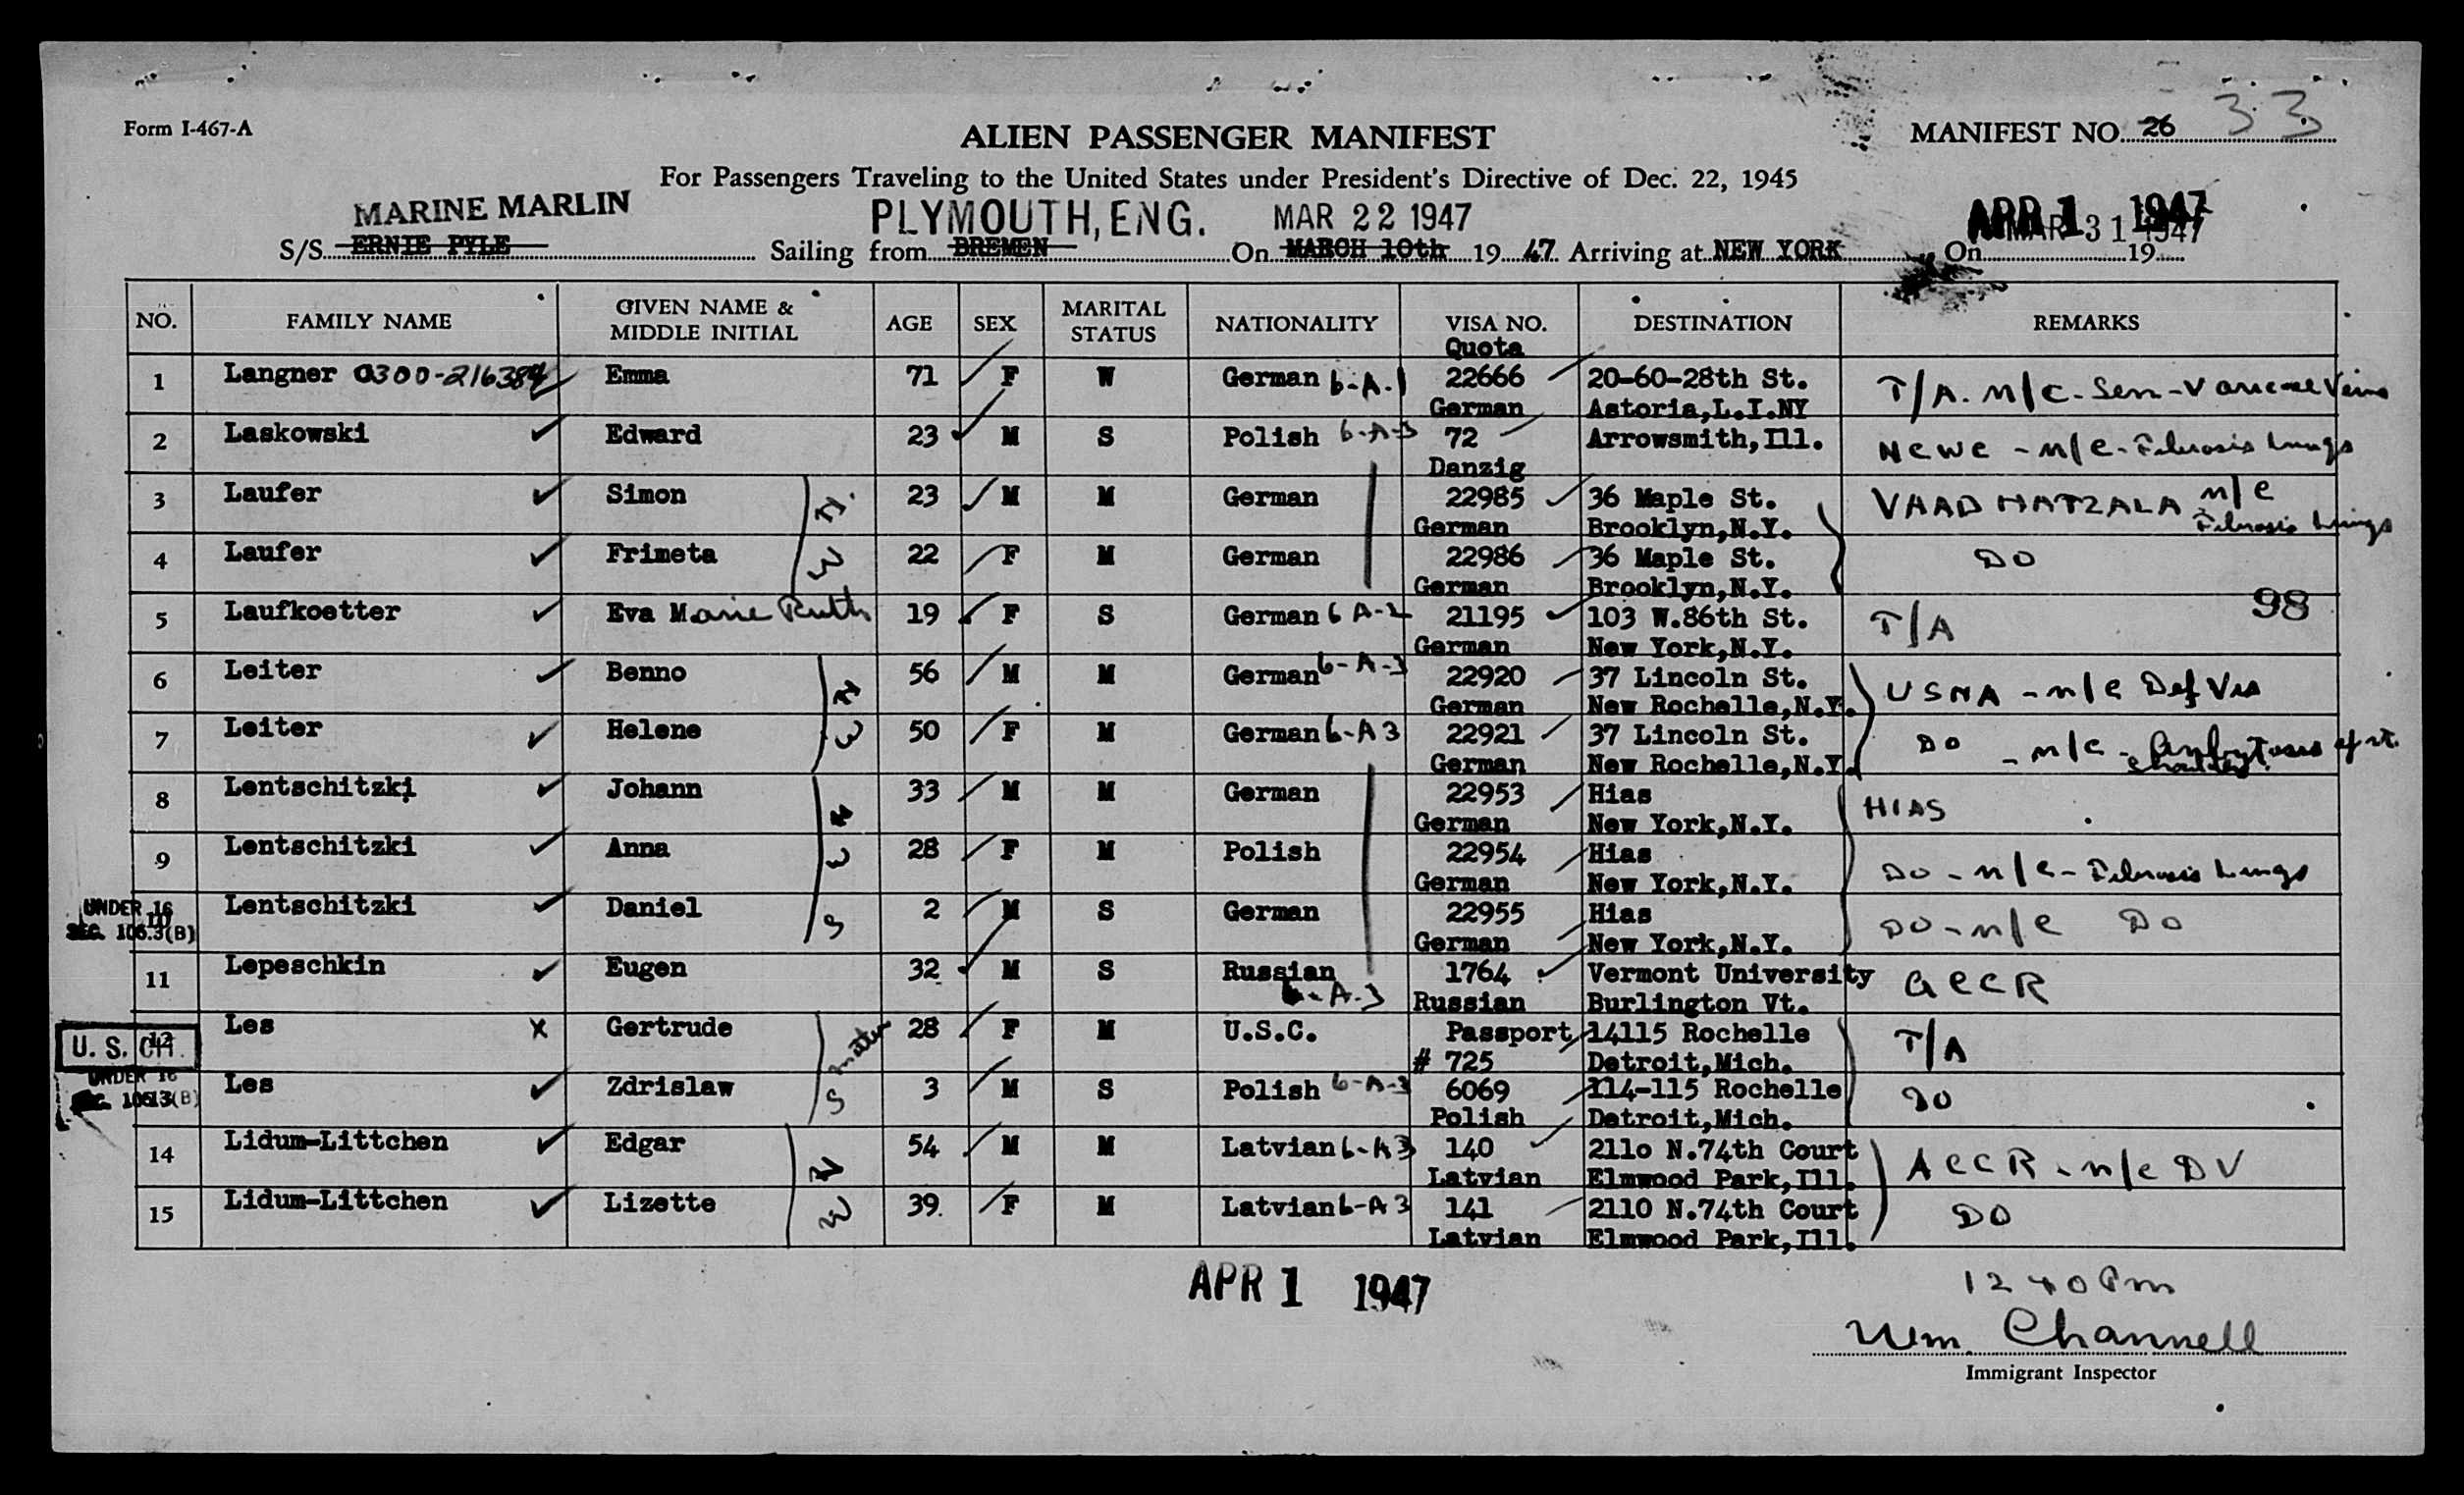 Form I-467-A
ALIEN PASSENGER MANIFEST
MANIFEST NO. 26 33
For Passengers Traveling to the United States under President's Directive of Dec. 22, 1945
MARINE MARLIN PLYMOUTH, ENG. MAR 22 1947 APR 1 1947
MAR 31 1947
S/S ERNIE PYLE Sailing from BREMEN On MARCH 10th 19 47 Arriving at NEW YORK On 19
NO. FAMILY NAME GIVEN NAME & MIDDLE INITIAL AGE SEX MARITAL STATUS NATIONALITY VISA NO. DESTINATION REMARKS
Quota
1 Langner 0300-216384 Emma 71 F W German 6-A-1 22666 20-60-28th St. T/A. n/c - Sen - Varicose Veins
German Astoria,L.I.NY
2 Laskowski Edward 23 M S Polish 6-A-3 72 Arrowsmith,Ill. NCWC - n/c - Fibrosis Lungs
Danzig
3 Laufer Simon H. 23 M M German 22985 36 Maple St. VAAD HATZALA n/c Fibrosis Lungs
German Brooklyn,N.Y.
4 Laufer Frimeta W 22 F M German 22986 36 Maple St. DO
German Brooklyn,N.Y.
98
5 Laufkoetter Eva Marie Ruth 19 F S German 6 A-2 21195 103 W.86th St. T/A
German New York,N.Y.
6 Leiter Benno H 56 M M German 6-A-3 22920 37 Lincoln St. USNA - n/c Def Vis
German New Rochelle,N.Y.
7 Leiter Helene W 50 F M German 6-A3 22921 37 Lincoln St. DO - n/c - of rt. shoulder
German New Rochelle,N.Y.
8 Lentschitzki Johann H 33 M M German 22953 Hias HIAS
German New York,N.Y.
9 Lentschitzki Anna W 28 F M Polish 22954 Hias DO - n/c - Fibrosis Lungs
German New York,N.Y.
UNDER 16
SEC. 106.3(B)
10 Lentschitzki Daniel S 2 M S German 22955 Hias DO - n/c DO
German New York,N.Y.
11 Lepeschkin Eugen 32 M S Russian 6-A-3 1764 Vermont University ACCR
Russian Burlington Vt.
U. S. CIT.
12 Les X Gertrude mother 28 F M U.S.C. Passport 14115 Rochelle T/A
# 725 Detroit,Mich.
UNDER 16
SEC. 106.3(B)
13 Les Zdrislaw S 3 M S Polish 6-A-3 6069 114-115 Rochelle DO
Polish Detroit,Mich.
14 Lidum-Littchen Edgar H 54 M M Latvian 6-A3 140 211o N.74th Court ACCR - n/c DV
Latvian Elmwood Park,Ill.
15 Lidum-Littchen Lizette W 39. F M Latvian 6-A3 141 2110 N.74th Court DO
Latvian Elmwood Park,Ill.
APR 1 1947
12 40 Pm
Wm. Channell
Immigrant Inspector